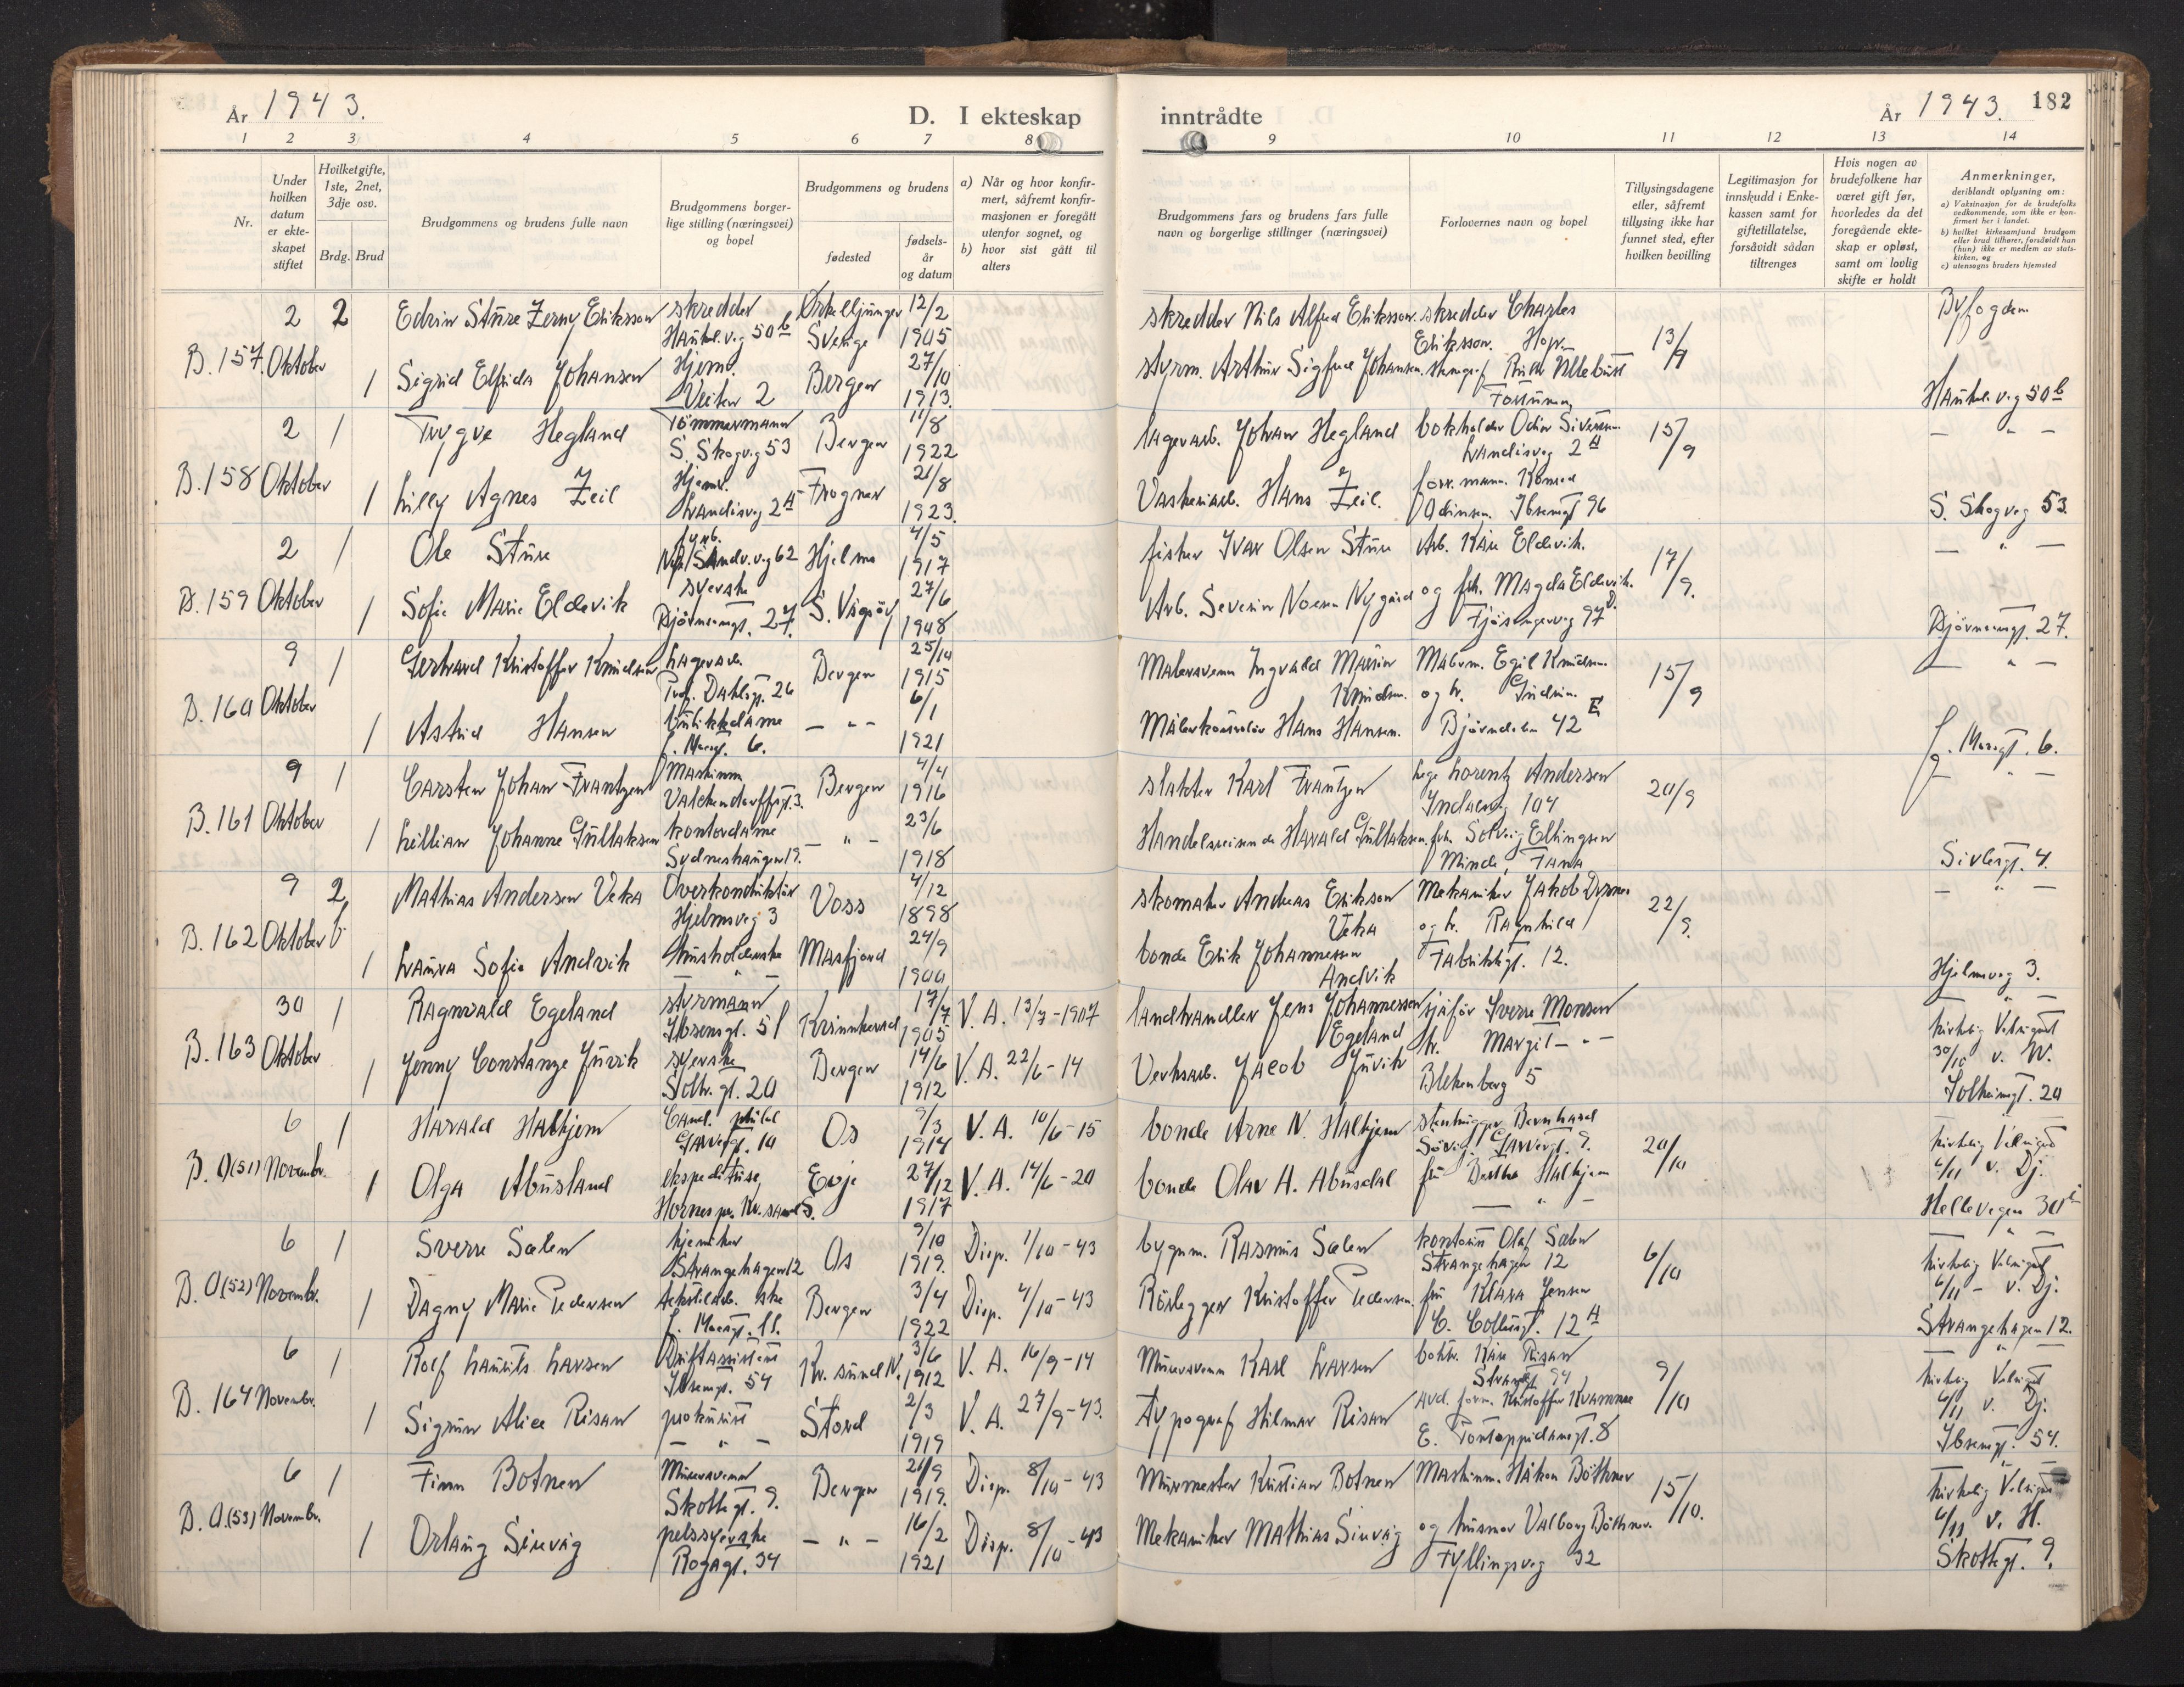 År 1943.
D. I ekteskap inntrådte
År 1943. 182
1 2 3 4 5 6 7 8 9 10 11 12 13 14
Nr.
Under hvilken datum er ekteskapet stiftet
Hvilket gifte, 1ste, 2net, 3dje osv.
Brdg. Brud
Brudgommens og brudens fulle navn
Brudgommens borgerlige stilling (næringsvei) og bopel
Brudgommens og brudens
fødested
fødselsår og datum
a) Når og hvor konfirmert, såfremt konfirmasjonen er foregått utenfor sognet, og
b) hvor sist gått til alters
Brudgommens fars og brudens fars fulle navn og borgerlige stillinger (næringsvei)
Forlovernes navn og bopel
Tillysingsdagene eller, såfremt tillysing ikke har funnet sted, efter hvilken bevilling
Legitimasjon for innskudd i Enkekassen samt for giftetillatelse, forsåvidt sådan tiltrenges
Hvis nogen av brudefolkene har været gift før, hvorledes da det foregående ekteskap er opløst, samt om lovlig skifte er holdt
Anmerkninger,
deriblandt oplysning om:
a) Vaksinasjon for de brudefolks vedkommende, som ikke er konfirmert her i landet.
b) hvilket kirkesamfund brudgom eller brud tilhører, forsåvidt han (hun) ikke er medlem av statskirken, og
c) utensogns bruders hjemsted
B. 157. 2 Oktober 2 Edvin Sture Zerny Eriksson skredder Haukel.vg 50b Örkelljunger Sverige 12/2 1905 skredder Nils Alfred Eriksson. skredder Charles Eriksson. Hop. 13/9 Byfogden
1 Sigrid Elfrida Johansen Hjem. Veiten 2 Bergen 27/10 1913. styrm. Arthur Sigfred Johansen. Haukel. vg 50b
B. 158 2 Oktober 1 Trygve Hegland Tömmermann S. Skogvg 53 Bergen 11/8 1922 lagerarb. Johan Hegland bokholder Odin Sivertsen 15/9 — " —
1 Lilly Agnes Zeil Hjemv. Frogner 21/8 1923. Vaskeriarb. Hans Zeil. Ibsensgt 96 S. Skogveg 53.
B. 159 2 Oktober 1 Ole Sture fyrb. Hjelme 4/5 1917 fisker Ivar Olsen Sture Arb. Kåre Eldevik. 17/9. — " —
1 Sofie Marie Eldevik syerske Bjørnsonsgt. 27. S. Vågsöy 27/6 1908 Arb. Severin Noem Nygård og frk. Magda Eldevik. Fjösangervg 97 Bjørnsonsgt. 27.
B. 160 9 Oktober 1 Gerhard Kristoffer Knudsen Lagerarb. Prof. Dahlsgt. 26 Bergen 25/10 1915 Malersvenn Ingvald Marin Knudsen. Malerm. Egil Knudsen. og h. Gudrun. 15/9 — " —
1 Astrid Hansen butikkdame J. Meyergt. 6. — " — 6/1 1921 Målerkontrolör Hans Hansen. Björndalen 42
B. 161 9 Oktober 1 Carsten Johan Frantzen Maskinm Valckendorffsgt. 3. Bergen 4/4 1916 slakter Karl Frantzen Lorentz Andersen Indalsvg 104 20/9 — " —
1 Lillian Johanne Gullaksen kontordame Sydneshaugen 19. — " — 23/6 1918 Handelsreisende Harald Gullaksen. frk. Solveig Ellingsen Minde, Fana Sivlesgt. 4.
B. 162 9 Oktober 2 Mathias Andersen Veka Overkonduktör Hjelmsvg 3 Voss 4/12 1898 skomaker Andreas Erikson Veka Mekaniker Jakob Dyrnes og h. Ragnhild Fabrikkgt. 12. 22/9. — " —
1 Laura Sofie Andvik Husholderske — " — Masfjord 24/9 1900. bonde Erik Johannessen Andvik Hjelmsvg 3.
B. 163 30 Oktober 1 Ragnvald Egeland styrmann Ibsensgt. 51 Kvinnherad 17/7 1905 V. A. 13/7-1907 landhandler Jens Johannessen Egeland sjåför Sverre Monsen h. Margit — " — kirkelig Velsignet 30/10 v. W.
1 Jenny Constanze Juvik syerske Solh. gt. 20 Bergen 14/6 1912 V. A. 22/6-14 Verksarb. Jacob Juvik Blekenberg 5 Solheimsgt. 20
B. 0(51) 6 Novembr. 1 Harald Halhjem Cand. philol Os 9/3 1914 V. A. 10/6-15 bonde Arne N. Halhjem Bernhard 20/10 kirkelig Velsignet 6/11 v. Dj.
1 Olga Abusland ekspeditrise, Hornes pr. Kr.sand S. Evje 27/12 1917 V. A. 14/6-20 bonde Olav A. Abusdal fru Berthe Halhjem — " — Hellevegen 30
B. 0(52) 6 Novembr. 1 Sverre Sælen kjemiker Strangehagen 12 Os 9/10 1919. Disp. 1/10-43 bygnm. Rasmus Sælen kontorist Olaf Sælen Strangehagen 12 6/10 kirkelig Velsignet 6/11 - v. Dj.
1 Dagny Marie Pedersen Tekstilarb. ske Bergen 3/4 1922 Disp. 4/10-43 Rörlegger Kristoffer Pedersen. fru Klara Jensen 12A Strangehagen 12.
B. 164 6 Novembr. 1 Rolf Laurits Larsen Driftassistent Ibsensgt. 54 Kr. sund N. 3/6 1912 V. A. 16/9-14 Murersvenn Karl Larsen bokh. Kåre Risan Strandgt 94 9/10 kirkelig Velsignet 6/11 v. Dj.
1 Sigrun Alice Risan prokurist — " — Stord 2/3 1919 V. A. 27/9-43. Typograf Hilmar Risan avd. form. Kristoffer Kvamme E. Pontoppidansgt. 8 Ibsensgt. 54.
B. 0.(53) 6 Novembr. 1 Finn Botnen Murersvenn Skottegt. 9. Bergen 21/9 1919. Disp. 8/10-43 Murmester Kristian Botnen Maskinm. Håkon Böthner 15/10. kirkelig Velsignet 6/11 v. H.
1 Orlaug Sinvåg pelssyerske Rogagt. 34 — " — 16/2 1921 Disp. 8/10-43 Mekaniker Mathias Sinvåg og husmor Valborg Böthner. Fyllingsveg 32 Skottegt. 9.